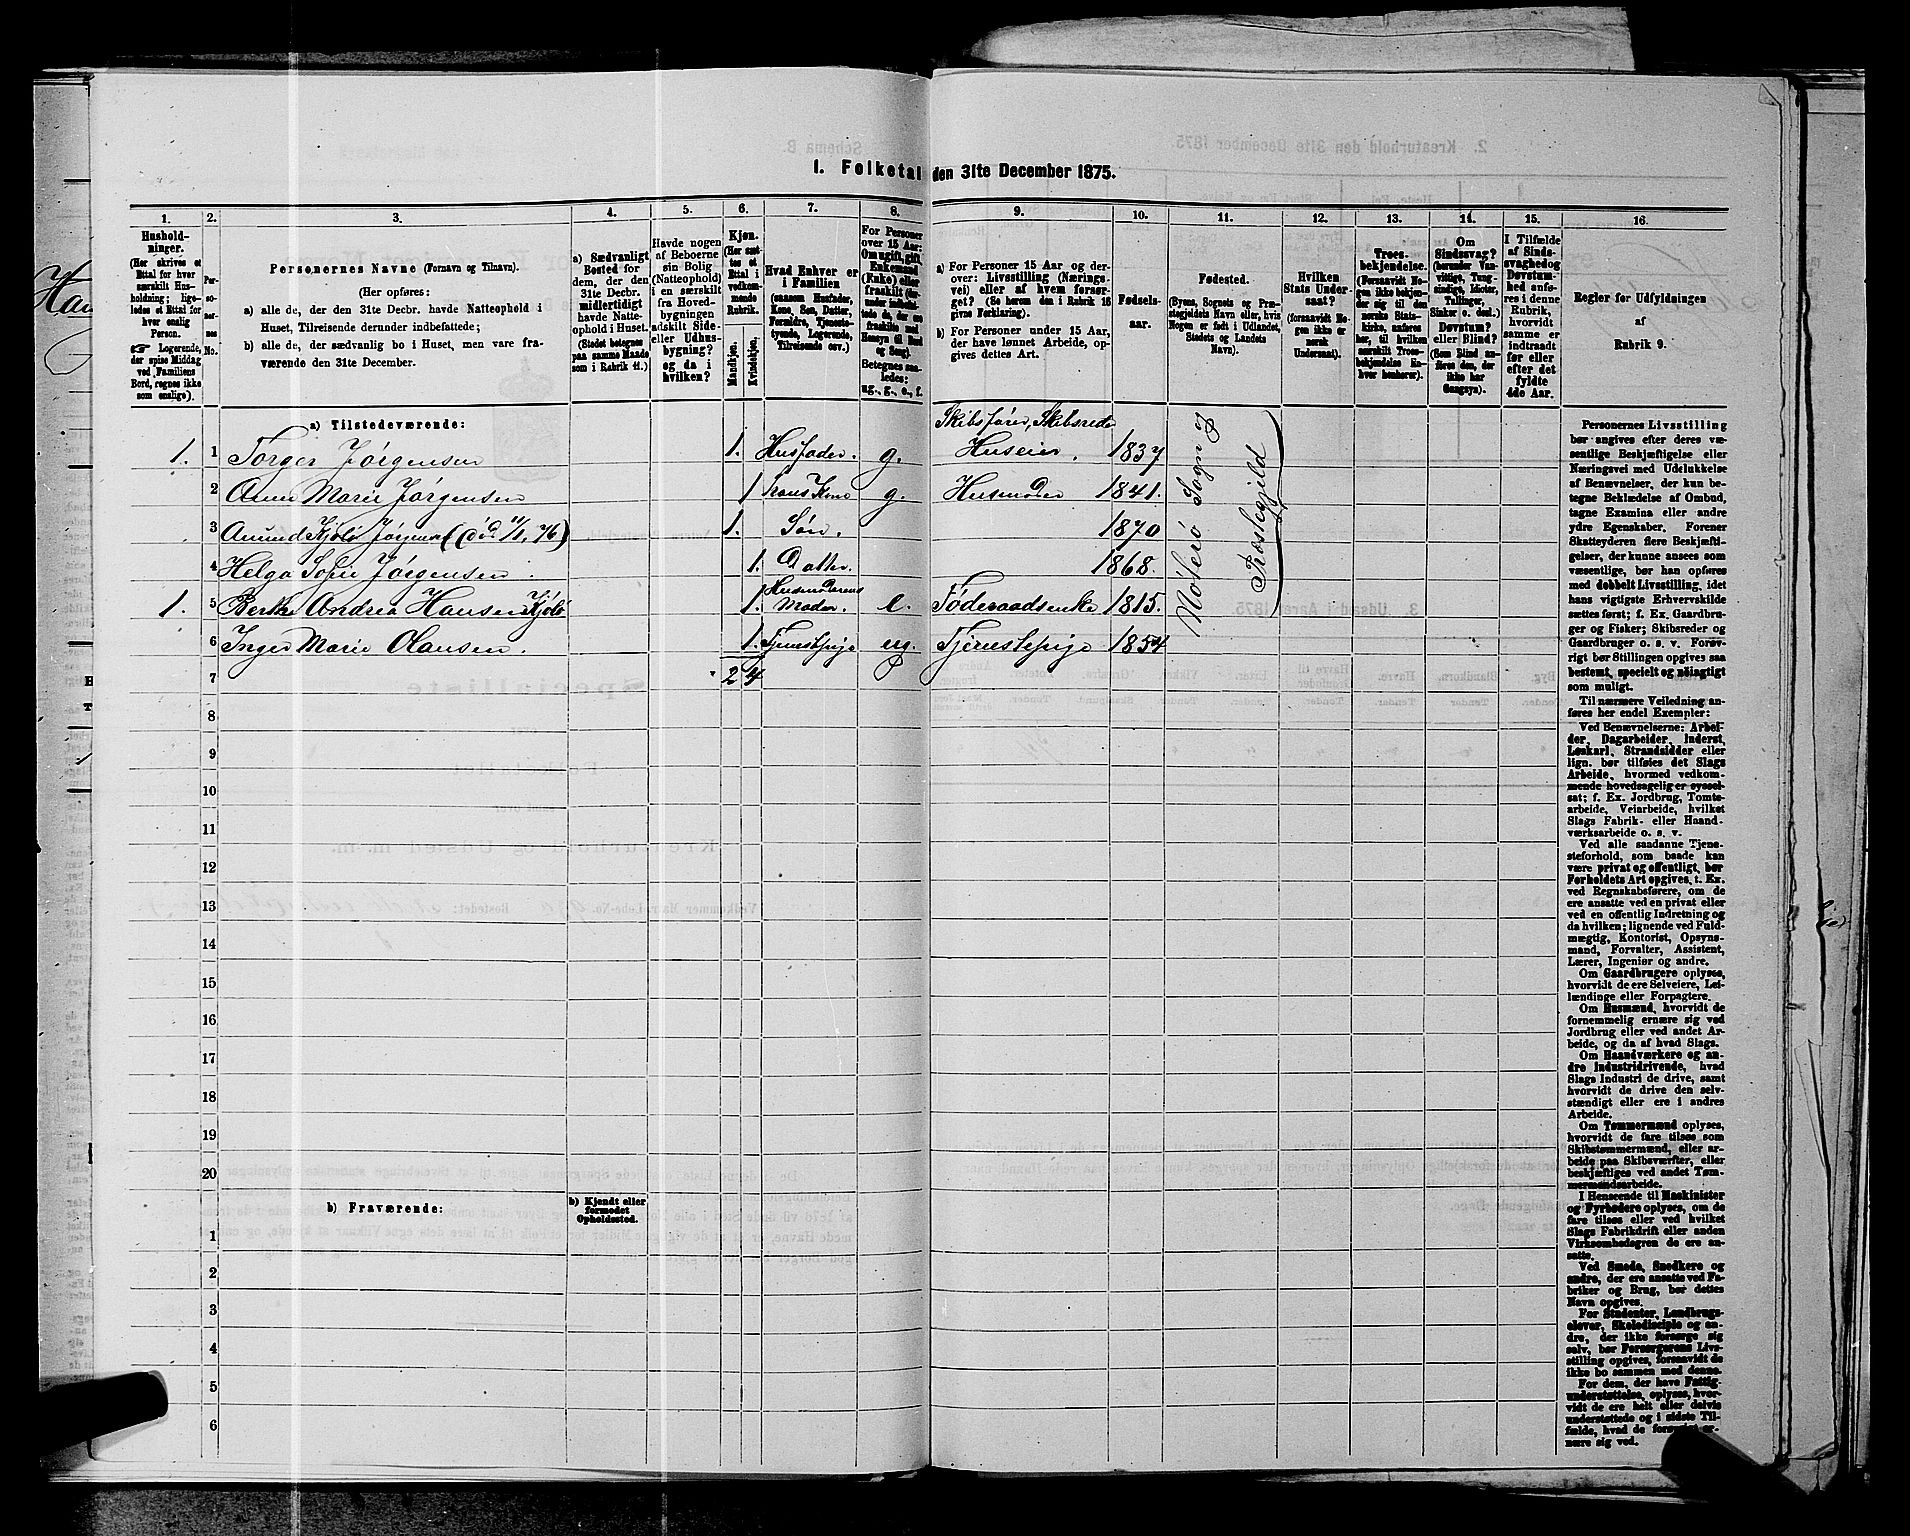 I. Folketal den 31te December 1875.
1. 2. 3. 4. 5. 6. 7. 8. 9. 10. 11. 12. 13. 14. 15. 16.
Husholdninger.
(Her skrives et Ettal for hver særskilt Husholdning; ligeledes et Ettal for hver enslig Person.
☞ Logerende, der spise Middag ved Familiens Bord, regnes ikke som enslige).
Personernes No.
Personernes Navne (Fornavn og Tilnavn).
(Her opføres:
a) alle de, der den 31te Decbr. havde Natteophold i Huset, Tilreisende derunder indbefattede;
b) alle de, der sædvanlig bo i Huset, men vare fraværende den 31te December.
a) Sædvanligt Bosted for dem, der den 31te Decbr. midlertidigt havde Natteophold i Huset.
(Stedet betegnes paa samme Maade som i Rubrik 11.)
Havde nogen af Beboerne sin Bolig (Natteophold) i en særskilt fra Hovedbygningen adskilt Side- eller Udhusbygning? og da i hvilken?
Kjøn.
(Her sættes et Ettal i vedkommende Rubrik.
Mandkjøn. Kvindekjøn.
Hvad Enhver er i Familien
(saasom Husfader, Kone, Søn, Datter, Forældre, Tjenestetyende, Logerende, Tilreisende osv.)
For Personer over 15 Aar: Om ugift, gift, Enkemand (Enke) eller fraskilt
Betegnes saaledes: ug., g., e., f.
a) For Personer 15 Aar og derover: Livsstilling (Næringsvei) eller af hvem forsørget? (Se herom den i Rubrik 16 givne Forklaring).
b) For Personer under 15 Aar, der have lønnet Arbeide, opgives dettes Art.
Fødselsaar.
Fødested.
(Byens, Sognets og Præstegjeldets Navn, eller, hvis Nogen er født i Udlandet, Stedets og Landets Navn).
Hvilken Stats Undersaat?
(forsaavidt Nogen ikke er norsk Undersaat).
Troesbekjendelse.
(Forsaavidt Nogen ikke bekjender sig til den norske Statskirke, anføres her, til hvilken særskilt Troesbekjendelse Enhver henhører).
Om Sindssvag?
(herunder Vanvittige, Tungsindige, Idioter, Tullinger, Sinker o. desl.)
Døvstum? eller Blind?
(Som Blind anføres den, der ikke har Gangsyn).
I Tilfælde af Sindssvaghed og Døvstumhed anføres i denne Rubrik, hvorvidt samme er indtraadt før eller efter det fyldte 4de Aar.
Regler for Udfyldningen af Rubrik 9.
a) Tilstedeværende:
Skibsfører, Skibsreder
1. 1 Torger Jørgensen 1. Husfader. g. Huseier. 1837
2 Anne Marie Jørgensen 1 Hans Kone g. Husmoder 1841.
3 Amund Kjølø Jørgensen (død 11/1, 76) 1. Søn. 1870
4 Helga Sofie Jørgensen. 1. Datter. 1868.
1. 5 Berthe Andrea Hansen Kjølø 1. Husmoderens Moder. e. Føderaadsenke 1815.
6 Inger Marie Olausen. 1. Tjenestepige ug. Tjenestepige 1854
Nøterø Sogn og Præstegjeld
7 2 4
8
9
10
11
12
13
14
15
16
17
18
19
20
b) Fraværende:
b) Kjendt eller formodet Opholdssted.
1
2
3
4
5
6
Personernes Livsstilling
bør angives efter deres væ-
sentlige Beskjæftigelse eller
Næringsvei med Udelukkelse
af Benævnelser, der kun be-
tegne Beklædelse af Ombud,
tagne Examina eller andre
ydre Egenskaber. Forener
Skatteyderen flere Beskjæfti-
gelser, der kunne ansees som
væsentlige, bør han opføres
med dobbelt Livsstilling, idet
hans vigtigste Erhvervskilde
sættes først; f. Ex. Gaardbru-
ger og Fisker; Skibsreder og
Gaardbruger o. s. v. Forøv-
rigt bør Stillingen opgives saa
bestemt, specielt og nøiagtigt
som muligt.
Til nærmere Veiledning an-
føres her endel Exempler:
Ved Benævnelserne: Arbei-
der, Dagarbeider, Inderst,
Løskarl, Strandsidder eller
lign. bør tilføies det Slags
Arbeide, hvormed vedkom-
mende hovedsagelig er syssel-
sat; f. Ex. Jordbrug, Tomte-
arbeide, Veiarbeide, hvilket
Slags Fabrik- eller Haand-
værksarbeide o. s. v.
Ved alle saadanne Tjene-
steforhold, som baade kan
være privat og offentligt, bør
Forholdets Art opgives, t. Ex.
ved Regnskabsførere, om de
ere ansatte ved en privat eller
ved en offentlig Indretning og
da hvilken; lignende ved Fuld-
mægtig, Kontorist, Opsyns-
mand, Forvalter, Assistent,
Lærer, Ingeniør og andre.
Om Gaardbrugere oplyses,
hvorvidt de ere Selveiere, Lei-
lændinge eller Forpagtere.
Om Husmænd, hvorvidt de
fornemmelig ernære sig ved
Jordbrug eller ved andet Ar-
beide, og da af hvad Slags.
Om Haandværkere og an-
dre Industridrivende, hvad
Slags Industri de drive, samt
hvorvidt de drive den selv-
stændigt eller ere i andres
Arbeide.
Om Tømmermænd oplyses,
hvorvidt de fare tilsøs som
Skibstømmermænd, eller ar-
beide paa Skibsværfter, eller
beskjæftiges ved andet Tøm-
mermandsarbeide.
I Henseende til Maskinister
og Fyrbødere oplyses, om de
fare tilsøs eller ved hvilket
Slags Fabrikdrift eller anden
Virksomhedsgren de ere an-
satte.
Ved Smede, Snedkere og
andre, der ere ansatte ved Fa-
briker og Brug, bør dettes
Navn opgives.
For Studenter, Landbrugs-
elever, Skoledisciple og an-
dre, der ikke forsørge sig
selv, bør Forsørgerens Livs-
stilling opgives, forsaavidt de
ikke bo sammen med denne.
For dem, der have Fattig-
understøttelse, oplyses, hvor-
vidt de ere helt eller delvis
understøttede og i sidste Til-
fælde, hvad de forøvrigt er-
nære sig ved.